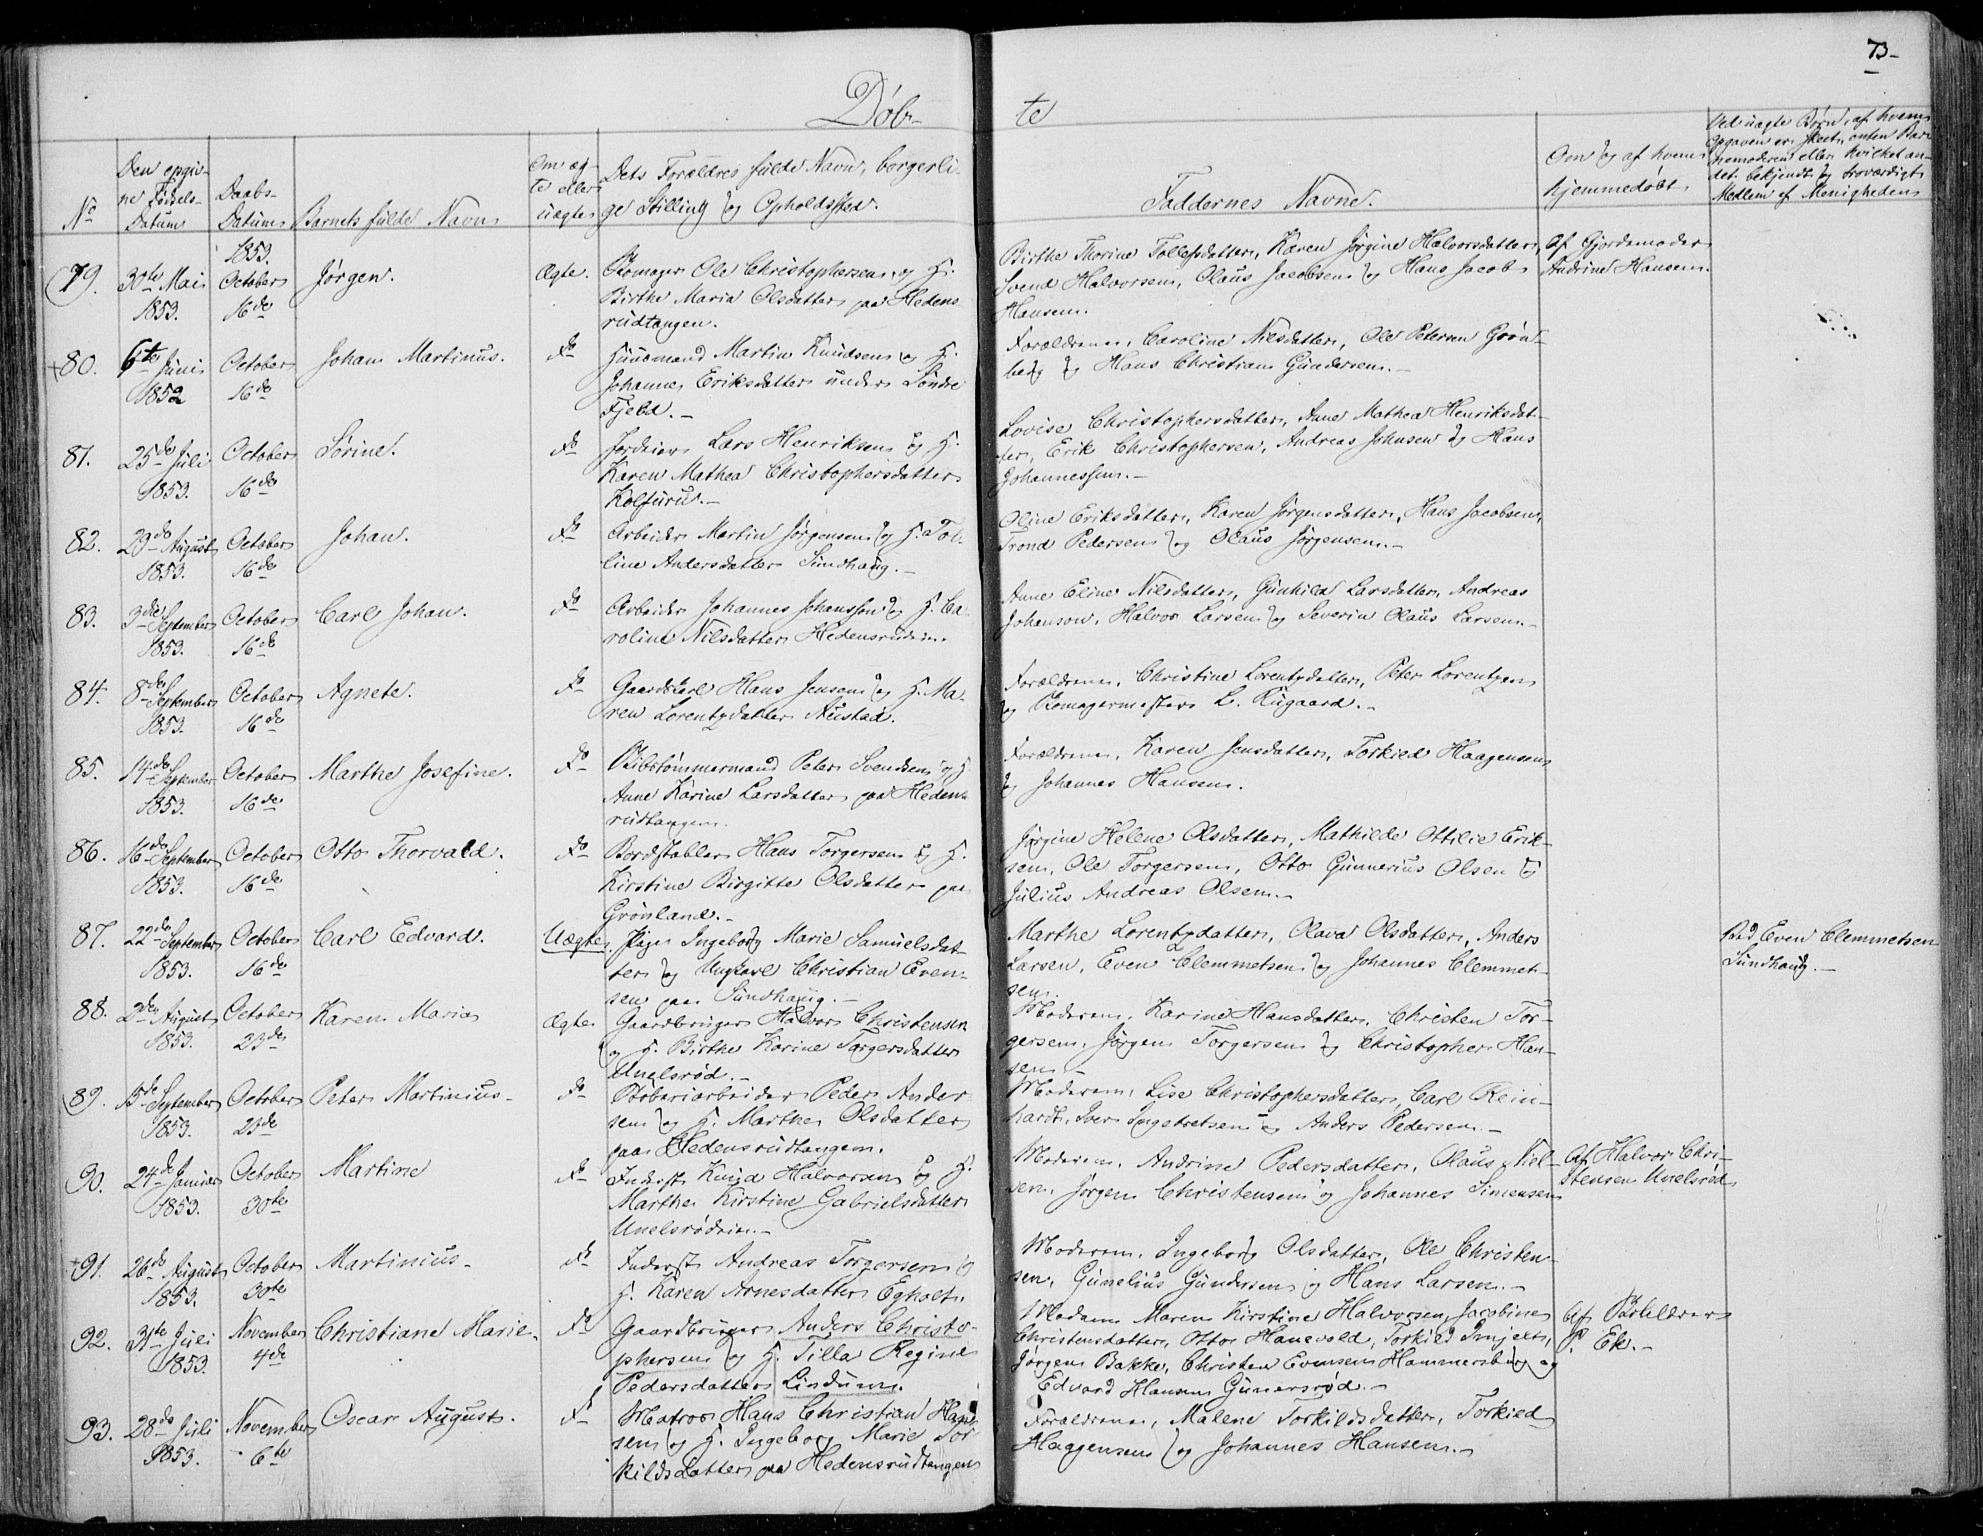 73-
Døb-
te
No
Den opgiv-
ne Fødsels-
Datum
Daabs-
Datum
Barnets fulde Navn
Om æg-
te eller
uægte
Dets Forældres fulde Navn, borgerli-
ge Stilling og Opholdssted.
Faddernes Navne.
Om og af hvem
hjemmedøbt
Ved uægte Børn, af hvem
Opgaven er skeet, enten Bar-
nemoderen eller hvilket an-
det bekjendt og troværdigt
Medlem af Menigheden
79.
30te Mai
1853.
1853.
October
16de
Jørgen.
Ægte.
Skomager Ole Christophersen og H.
Birthe Maria Olsdatter paa Hedens-
rudtangen.
Birthe Thorine Tollefsdatter, Karen Jørgine Halvorsdatter,
Svend Halvorsen, Olaus Jacobsen og Hans Jacob
Hansen.
Af Gjordemoder
Andrine Hansen.
+80.
6te Juni
1852
October
16de
Johan Martinus.
do
Huusmand Martin Knudsen og H.
Johanne Eriksdatter under Søndre
Fjeld.-
Forældrene, Caroline Nilsdatter, Ole Petersen Grøn-
berg og Hans Christian Gundersen.-
81.
25de Juli
1853.
October
16de
Sørine.
do
Jordeier Lars Henriksen og H.
Karen Mathea Christophersdatter
Kolfurus.-
Lovise Christophersdatter, Anne Mathea Henriksdat-
ter, Erik Christophersen, Andreas Johnsen og Hans
Johannessen.-
82.
29de August
1853.
October
16de
Johan.
do
Arbeider Martin Jørgensen og H. Tol-
line Andersdatter Sundhaug.-
Oline Eriksdatter, Karen Jørgensdatter, Hans Jacobsen,
Trond Pedersen og Olaus Jørgensen.-
83.
3die September
1853.
October
16de
Carl Johan.
do
Arbeider Johannes Johanssen og H. Ca-
roline Nilsdatter Hedensrudeie.
Anne Eline Nilsdatter, Gunhild Larsdatter, Andreas
Johanson, Halvor Larsen og Severin Olaus Larsen.-
84.
8de September
1853.
October
16de
Agnete.
do
Gaardskarl Hans Jensen og H. Ma-
ren Lorentzdatter Nustad.
Forældrene, Christine Lorentzdatter, Peter Lorentzen
og Skomagermester L. Rugaard.-
85.
14de September
1853.
October
16de
Marthe Josefine.
do
Skibstømmermand Peter Svendsen og H.
Anne Karine Larsdatter paa Hedens-
rudtangen.
Forældrene, Karen Jensdatter, Torkied Haagensen
og Johannes Hansen.
86.
16de September
1853.
October
16de
Otto Thorvald.
do
Bordstabler Hans Torgersen og H.
Kirstine Birgitte Olsdatter paa
Grønland.-
Jørgine Helene Olsdatter, Mathilde Ottilie Erik-
sen, Ole Torgersen, Otto Gunnerius Olsen og
Julius Andreas Olsen.-
87.
22de September
1853.
October
16de
Carl Edvard.
Uægte
Pige Ingeborg Marie Samuelsdat-
ter og Ungkarl Christian Even-
sen paa Sundhaug.-
Marthe Lorentzdatter, Olava Olsdatter, Anders
Larsen, Even Clemmetsen og Johannes Clemmet-
sen.
Ved Even Clemmetsen
Sundhaug.-
88.
2den August
1853.
October
23de
Karen Maria
Ægte
Gaardbruger Halvor Christensen
og H. Birthe Karine Torgersdatter
Unelsrød.-
Moderen, Karine Hansdatter, Christen Tor-
gersen, Jørgen Torgersen og Christopher Han-
sen.-
89.
15de September
1853.
October
23de
Peter Martinius-
do
Støberiarbeider Peder Ander-
sen og H. Marthe Olsdatter
paa Hedensrudtangen.
Moderen, Lise Christophersdatter, Carl Rein-
hardt, Iver Ingebretsen og Anders Pedersen.-
90.
24de Januar
1853.
October
30te
Martine
do
Inderst Knud Halvorsen og H.
Marthe Kirstine Gabrielsdatter
Unelsrødeie.-
Moderen, Andrine Pedersdatter, Olaus Niel-
sen, Jørgen Christensen og Johannes Simensen
Af Halvor Chri-
stensen Unelsrød
+91.
26de August
1853.
October
30te
Martinius-
do
Inderst Andreas Torgersen og
H. Karen Arnesdatter Egholt.
Moderen, Ingeborg Olsdatter, Ole Christen-
sen, Gunelius Gundersen og Hans Larsen.-
92.
31te Juli
1853.
November
4de
Christiane Marie-
do
Gaardbruger Anders Christo-
phersen og H. Tilla Regine
Pedersdatter Lindum.
Madam Maren Kirstine Halvorsen, Jacobine
Christensdatter, Otto Hanevold, Torkild Imjelt,
Jørgen Bakke, Christen Evensen Hammersborg og
Edvard Hansen Gunersrød.-
Af Skolelærer
P. Ek.-
93.
28de Juli
1853.
November
6te
Oscar August.
do
Matros Hans Christian Haag-
sen og H. Ingeborg Marie Tor-
kildsdatter paa Hedensrudtangen
Forældrene, Malene Torkildsdatter, Torkied
Haagensen og Johannes Hansen.-